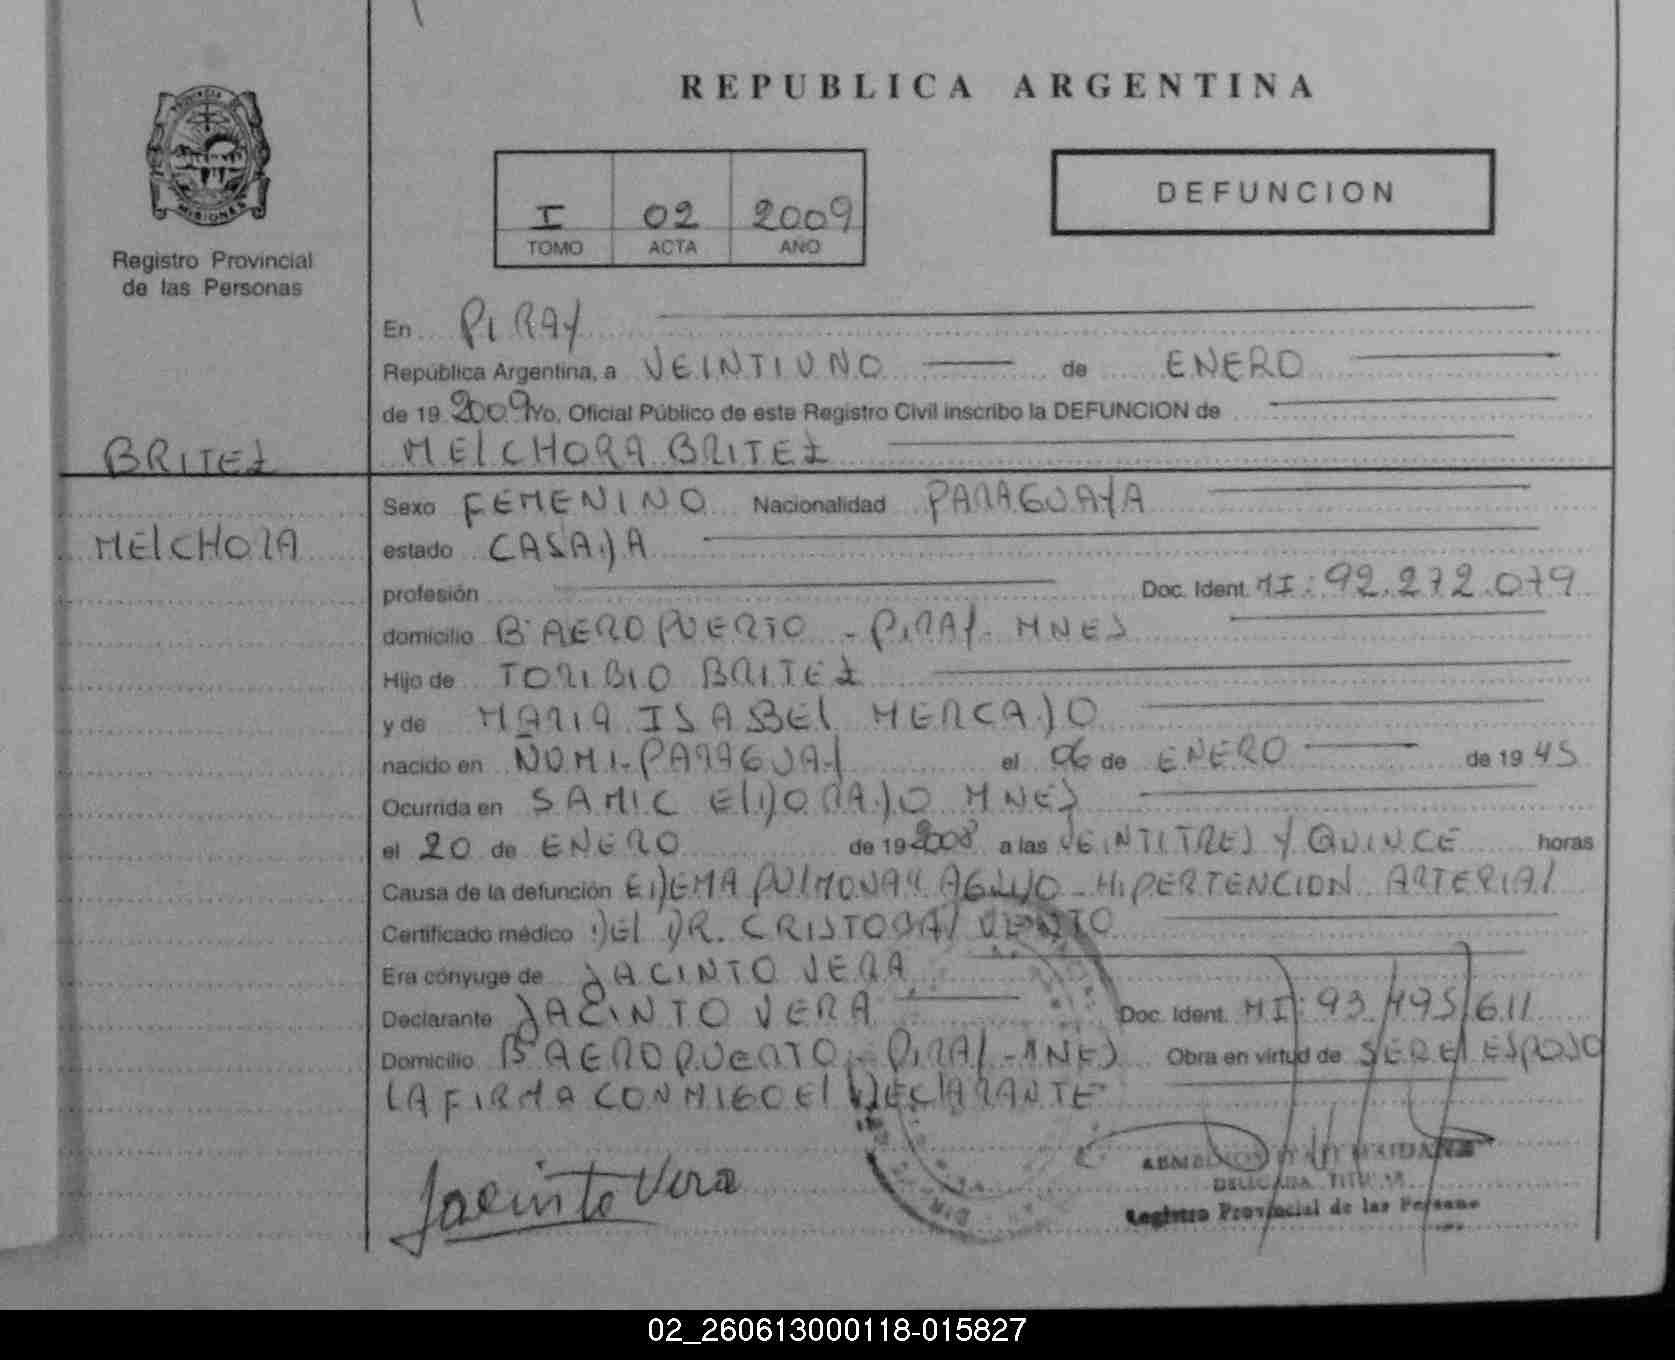 REPUBLICA ARGENTINA
PROVINCIA DE
MISIONES
Registro Provincial
de las Personas
I 02 2009
TOMO ACTA AÑO
DEFUNCION
En PIRAY
República Argentina, a VEINTIUNO de ENERO
de 19 2009 Yo, Oficial Público de este Registro Civil inscribo la DEFUNCION de
BRITEZ
MELCHORA BRITEZ
MELCHORA
Sexo FEMENINO Nacionalidad PARAGUAYA
estado CASADA
profesión Doc. Ident. MI: 92.272.079
domicilio Bº AEROPUERTO - PIRAY - MNES
Hijo de TORIBIO BRITEZ
y de MARIA ISABEL MERCADO
nacido en ÑUMI-PARAGUAY el 06 de ENERO de 19 45
Ocurrida en SAMIC ELDORADO MNES
el 20 de ENERO de 19 2008 a las VEINTITRES Y QUINCE horas
Causa de la defunción EDEMA PULMONAR AGUDO - HIPERTENCION ARTERIAL
Certificado médico DEL DR. CRISTOBAL VENTO
Era cónyuge de JACINTO VERA
Declarante JACINTO VERA Doc. Ident. MI: 93.495.611
Domicilio Bº AEROPUERTO - PIRAY - MNES Obra en virtud de SER EL ESPOSO
LA FIRMA CONMIGO EL DECLARANTE
Jacinto Vera
DELEGADA TITULAR
Registro Provincial de las Personas
02_260613000118-015827